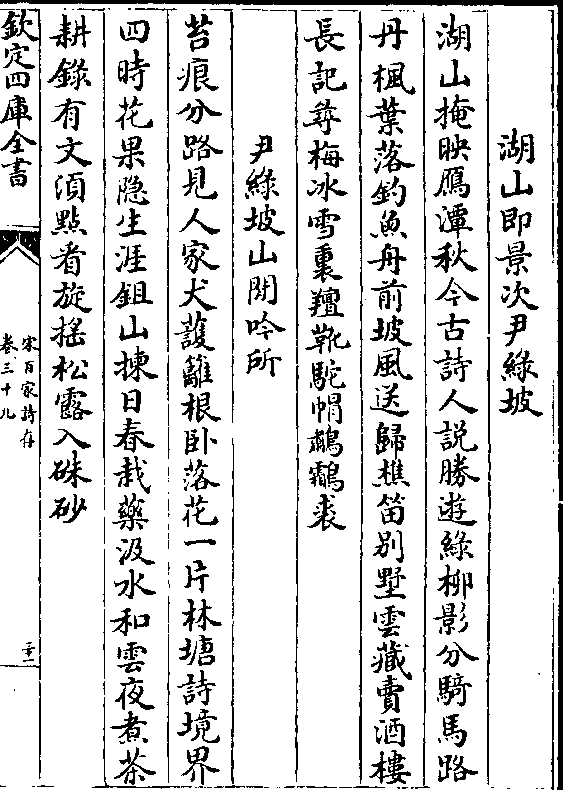 湖山即景次尹綠坡
湖山掩映鴈潭秋今古詩人説勝遊綠栁影分騎馬路
丹楓葉落釣魚舟前坡風送歸樵笛别墅雲藏賣酒樓
長記尋梅冰雪裏氊靴駝帽鷫鸘裘
尹綠坡山閒吟所
苔痕分路見人家犬護籬根卧落花一片林塘詩境界
四時花果隐生涯鉏山揀日春栽藥汲水和雲夜煮茶
耕錄有文湏㸃看旋揺松露入硃砂
欽定四庫全書
宋百家詩存
卷三十九